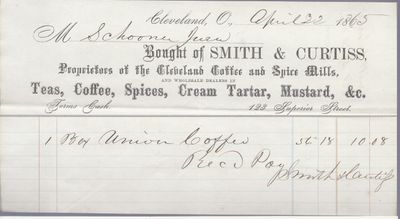 Cleveland, O., April 22 1865
M Schooner
Bought of SMITH & CURTISS,
Proprietors of the Cleveland Coffee and Spice Mills,
AND WHOLESALE DEALERS IN
Teas, Coffee, Spices, Cream Tartar, Mustard, &c.
Terms Cash. 123 Superior Street.
1 Box Union Coffee 56 18 10.08
Rec'd Pay
Smith & Curtiss